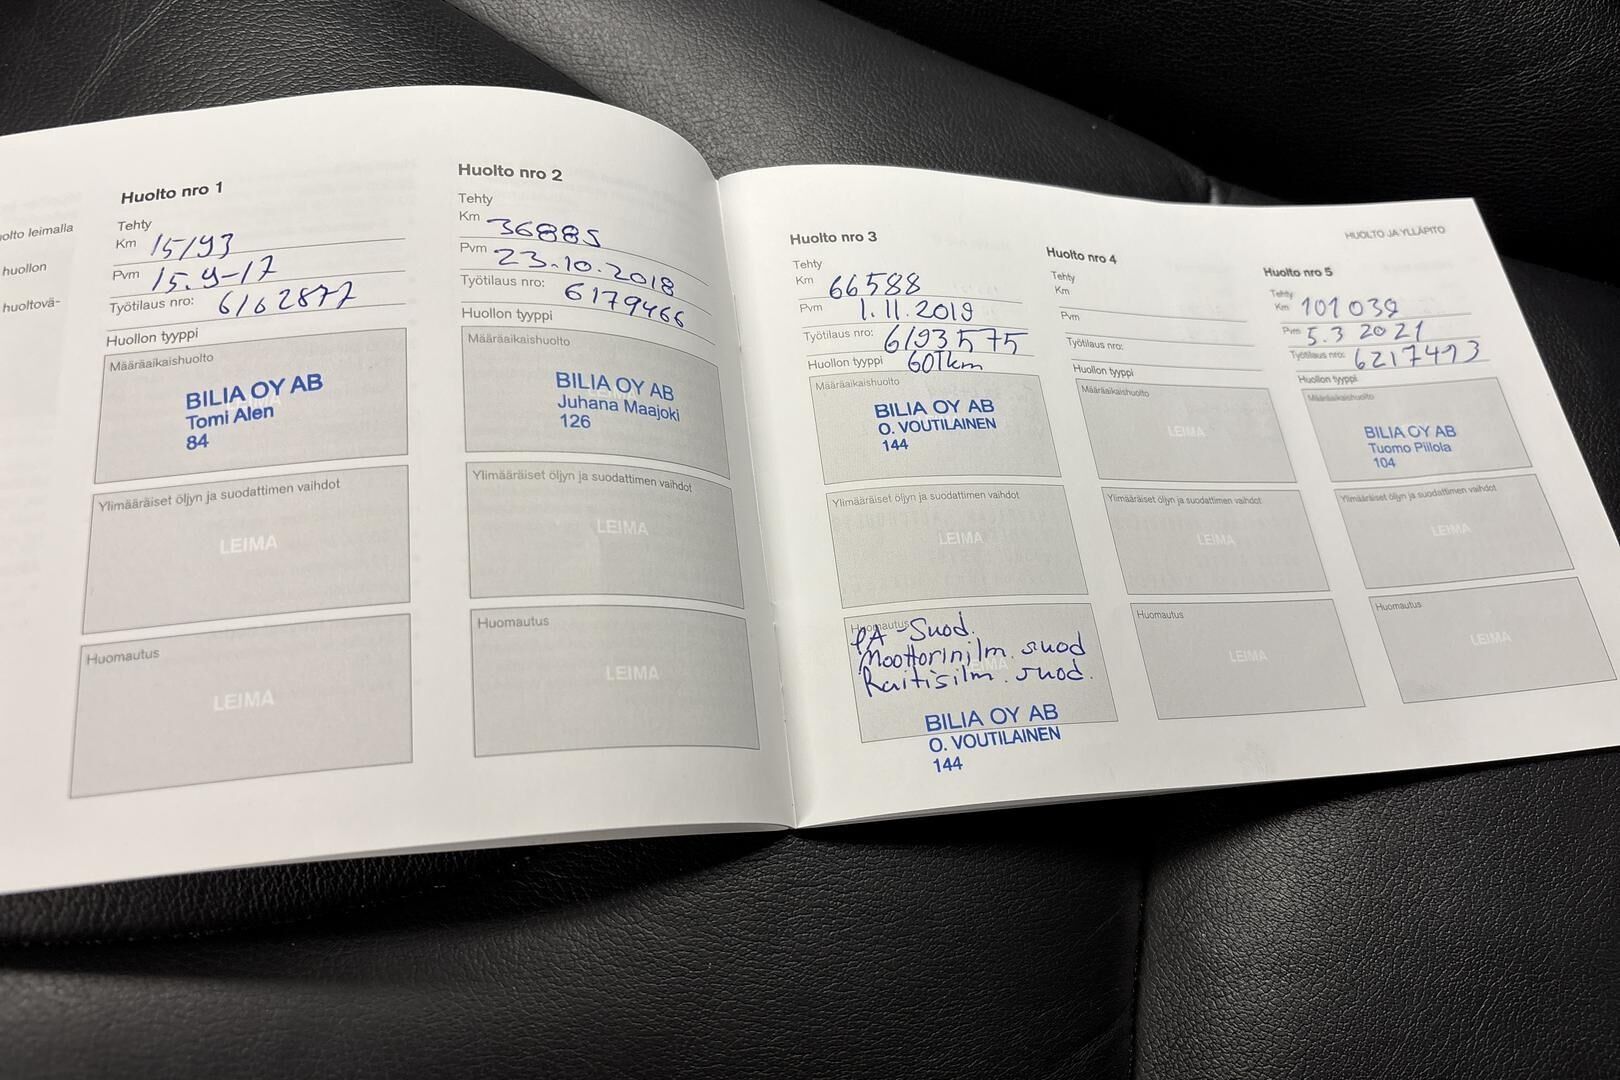 olto leimalla
huollon
huoltovä-
Huolto nro 1
Tehty
Km 15193
Pvm 15.9-17
Työtilaus nro: 6162877
Huollon tyyppi
Määräaikaishuolto
BILIA OY AB
Tomi Alen
84
Ylimääräiset öljyn ja suodattimen vaihdot
LEIMA
Huomautus
LEIMA
Huolto nro 2
Tehty
Km 36885
Pvm 23.10.2018
Työtilaus nro: 6179466
Huollon tyyppi
Määräaikaishuolto
BILIA OY AB
Juhana Maajoki
126
Ylimääräiset öljyn ja suodattimen vaihdot
LEIMA
Huomautus
LEIMA
HUOLTO JA YLLÄPITO
Huolto nro 3
Tehty
Km 66588
Pvm 1.11.2019
Työtilaus nro: 6193575
Huollon tyyppi 60Tkm
Määräaikaishuolto
BILIA OY AB
O. VOUTILAINEN
144
Ylimääräiset öljyn ja suodattimen vaihdot
LEIMA
Huomautus
PA-Suod.
Moottorinilm. suod
Raitisilm. suod.
BILIA OY AB
O. VOUTILAINEN
144
Huolto nro 4
Tehty
Km
Pvm
Työtilaus nro:
Huollon tyyppi
Määräaikaishuolto
LEIMA
Ylimääräiset öljyn ja suodattimen vaihdot
LEIMA
Huomautus
LEIMA
Huolto nro 5
Tehty
Km 101039
Pvm 5.3 2021
Työtilaus nro: 6217493
Huollon tyyppi
Määräaikaishuolto
BILIA OY AB
Tuomo Piilola
104
Ylimääräiset öljyn ja suodattimen vaihdot
LEIMA
Huomautus
LEIMA